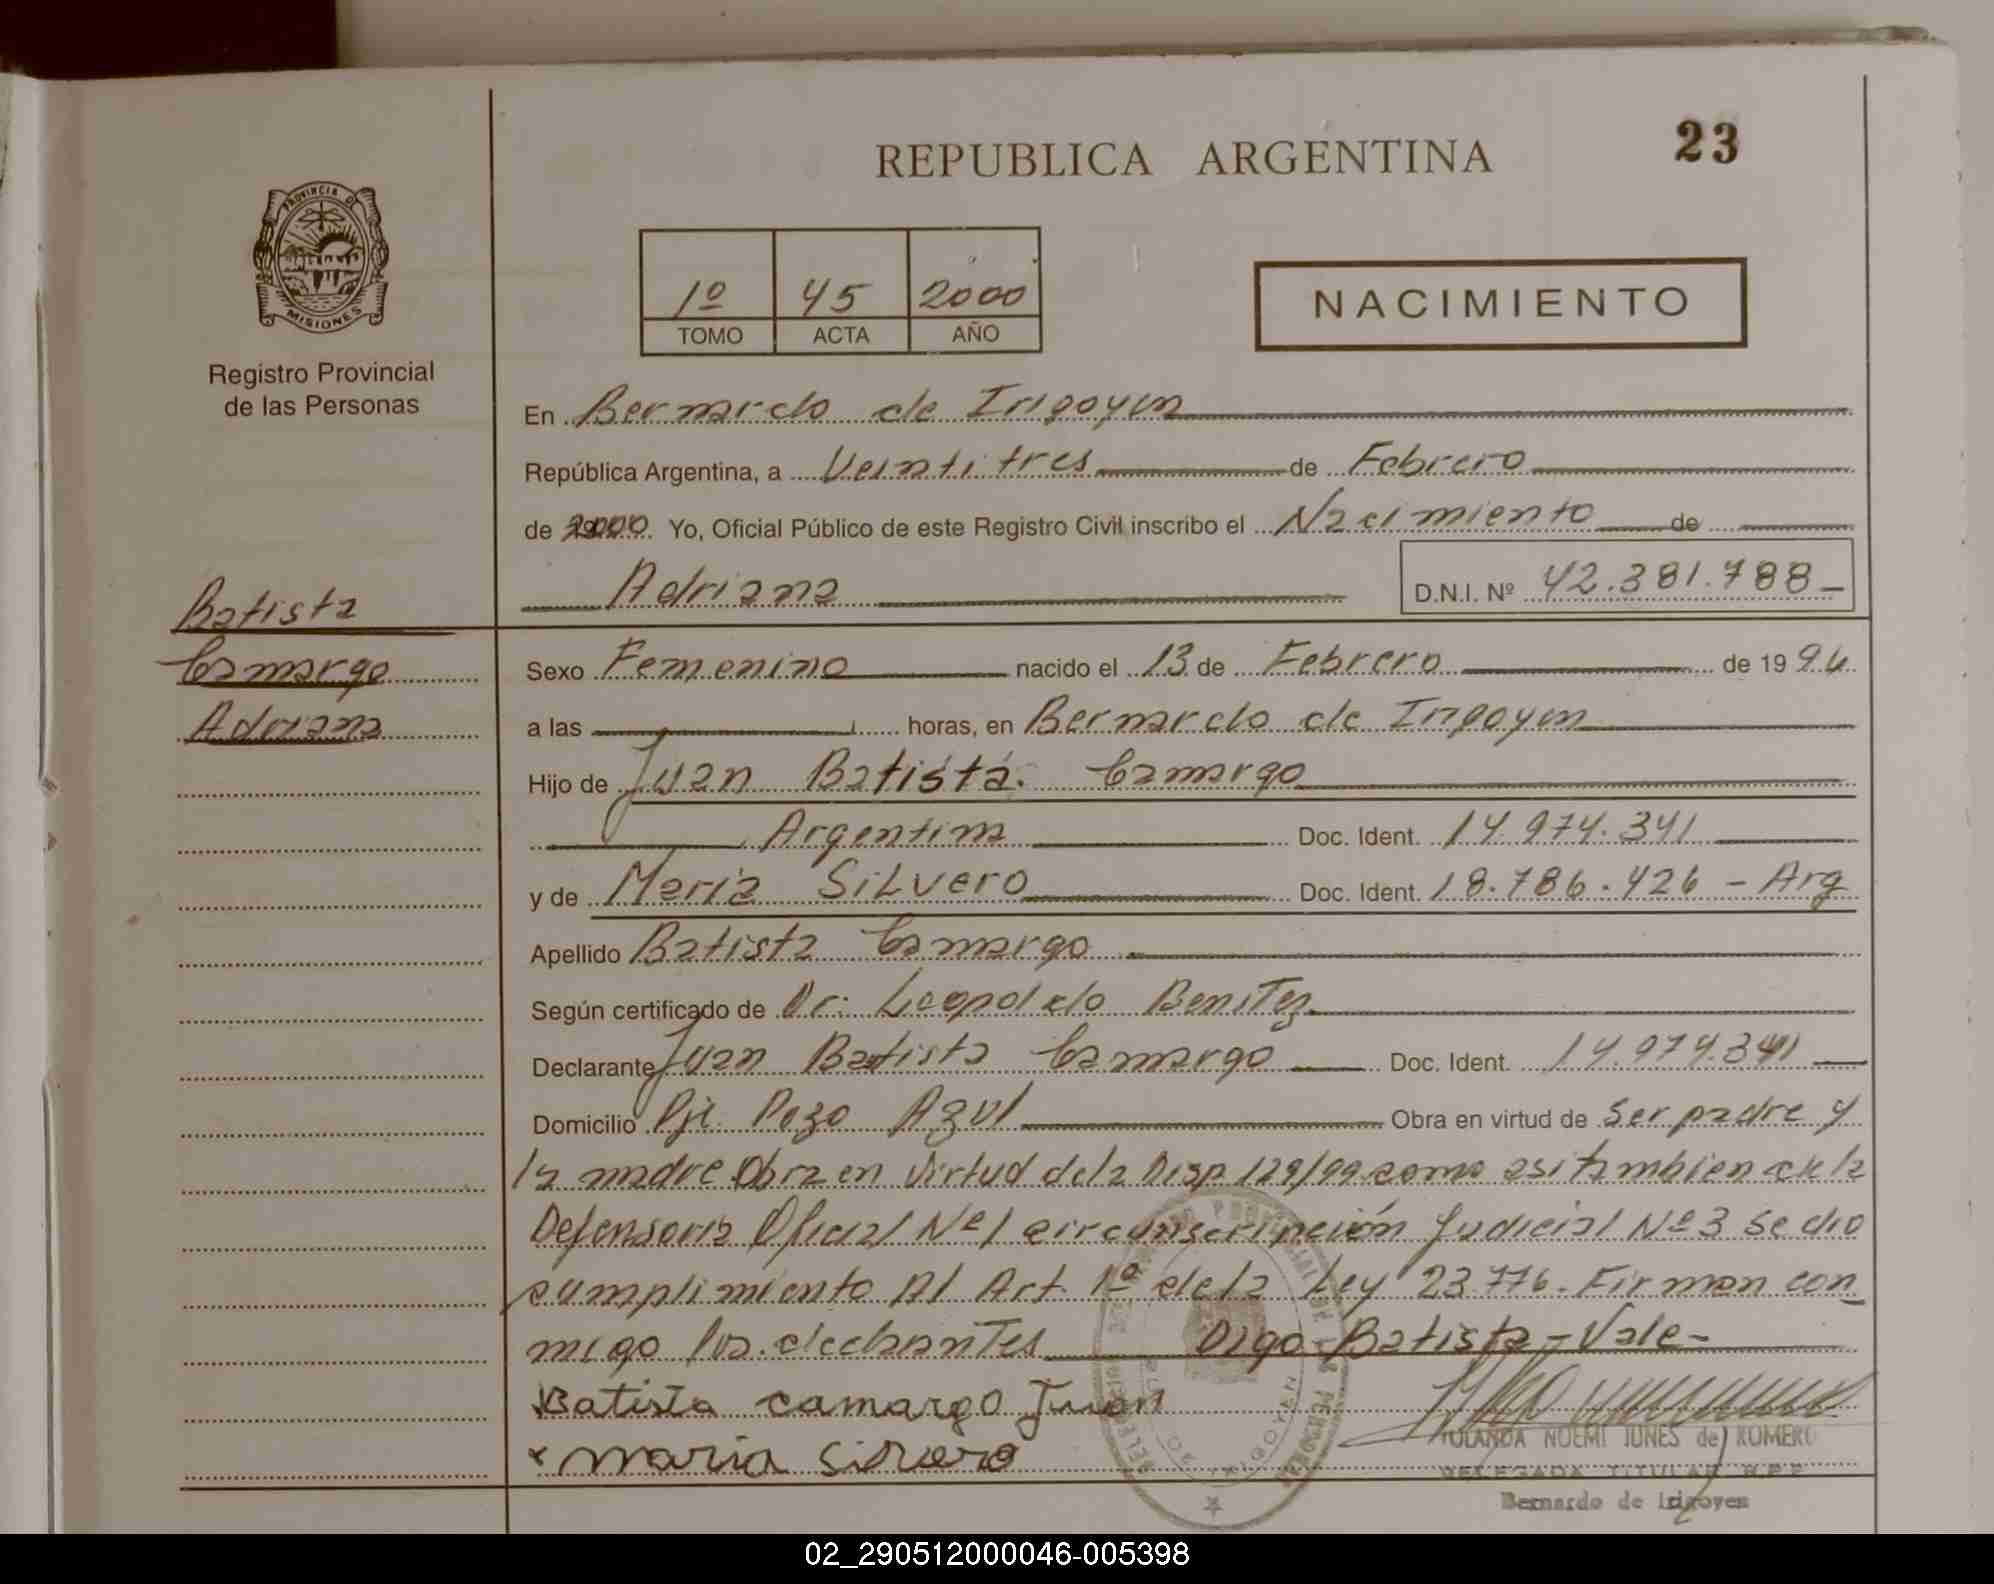 REPUBLICA ARGENTINA
23
PROVINCIA DE
MISIONES
Registro Provincial
de las Personas
1º 45 2000
TOMO ACTA AÑO
NACIMIENTO
En Bernardo de Irigoyen
República Argentina, a Veintitres de Febrero
de 2000. Yo, Oficial Público de este Registro Civil inscribo el Nacimiento de
Adriana D.N.I. Nº 42.381.788-
Batista
Camargo
Adriana
Sexo Femenino nacido el 13 de Febrero de 1994
a las horas, en Bernardo de Irigoyen
Hijo de Juan Batista Camargo
Argentina Doc. Ident. 14.974.341
y de Maria Silvero Doc. Ident. 18.786.426 - Arg
Apellido Batista Camargo
Según certificado de Dr. Leopoldo Benitez
Declarante Juan Batista Camargo Doc. Ident. 14.974.341
Domicilio Pje. Pozo Azul Obra en virtud de Ser padre y
la madre Obra en virtud dela Disp 129/99 como asi tambien de la
Defensoria Oficial Nº 1 circunscripción Judicial Nº 3 Se dio
cumplimiento Al Art. 1º de la Ley 23.776. Firman con_
migo los declarantes Digo-Batista-Vale-
Batista camargo Juan
x maria Silvero
YOLANDA NOEMI JUNES de ROMERO
DELEGADA TITULAR R.P.P.
Bernardo de Irigoyen
02_290512000046-005398